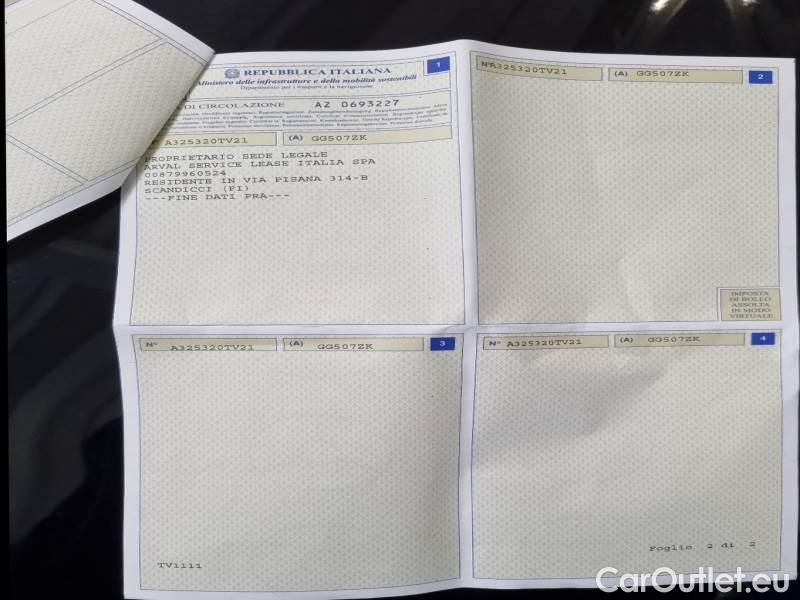 REPUBBLICA ITALIANA
Ministero delle infrastrutture e della mobilità sostenibili
Dipartimento per i trasporti e la navigazione
DI CIRCOLAZIONE AZ 0693227
1
N° A325320TV21 (A) GG507ZK
PROPRIETARIO SEDE LEGALE
ARVAL SERVICE LEASE ITALIA SPA
00879960524
RESIDENTE IN VIA PISANA 314-B
SCANDICCI (FI)
---FINE DATI PRA---
N° A325320TV21 (A) GG507ZK 2
IMPOSTA
DI BOLLO
ASSOLTA
IN MODO
VIRTUALE
N° A325320TV21 (A) GG507ZK 3
TV1111
N° A325320TV21 (A) GG507ZK 4
Foglio 2 di 2
CarOutlet.eu